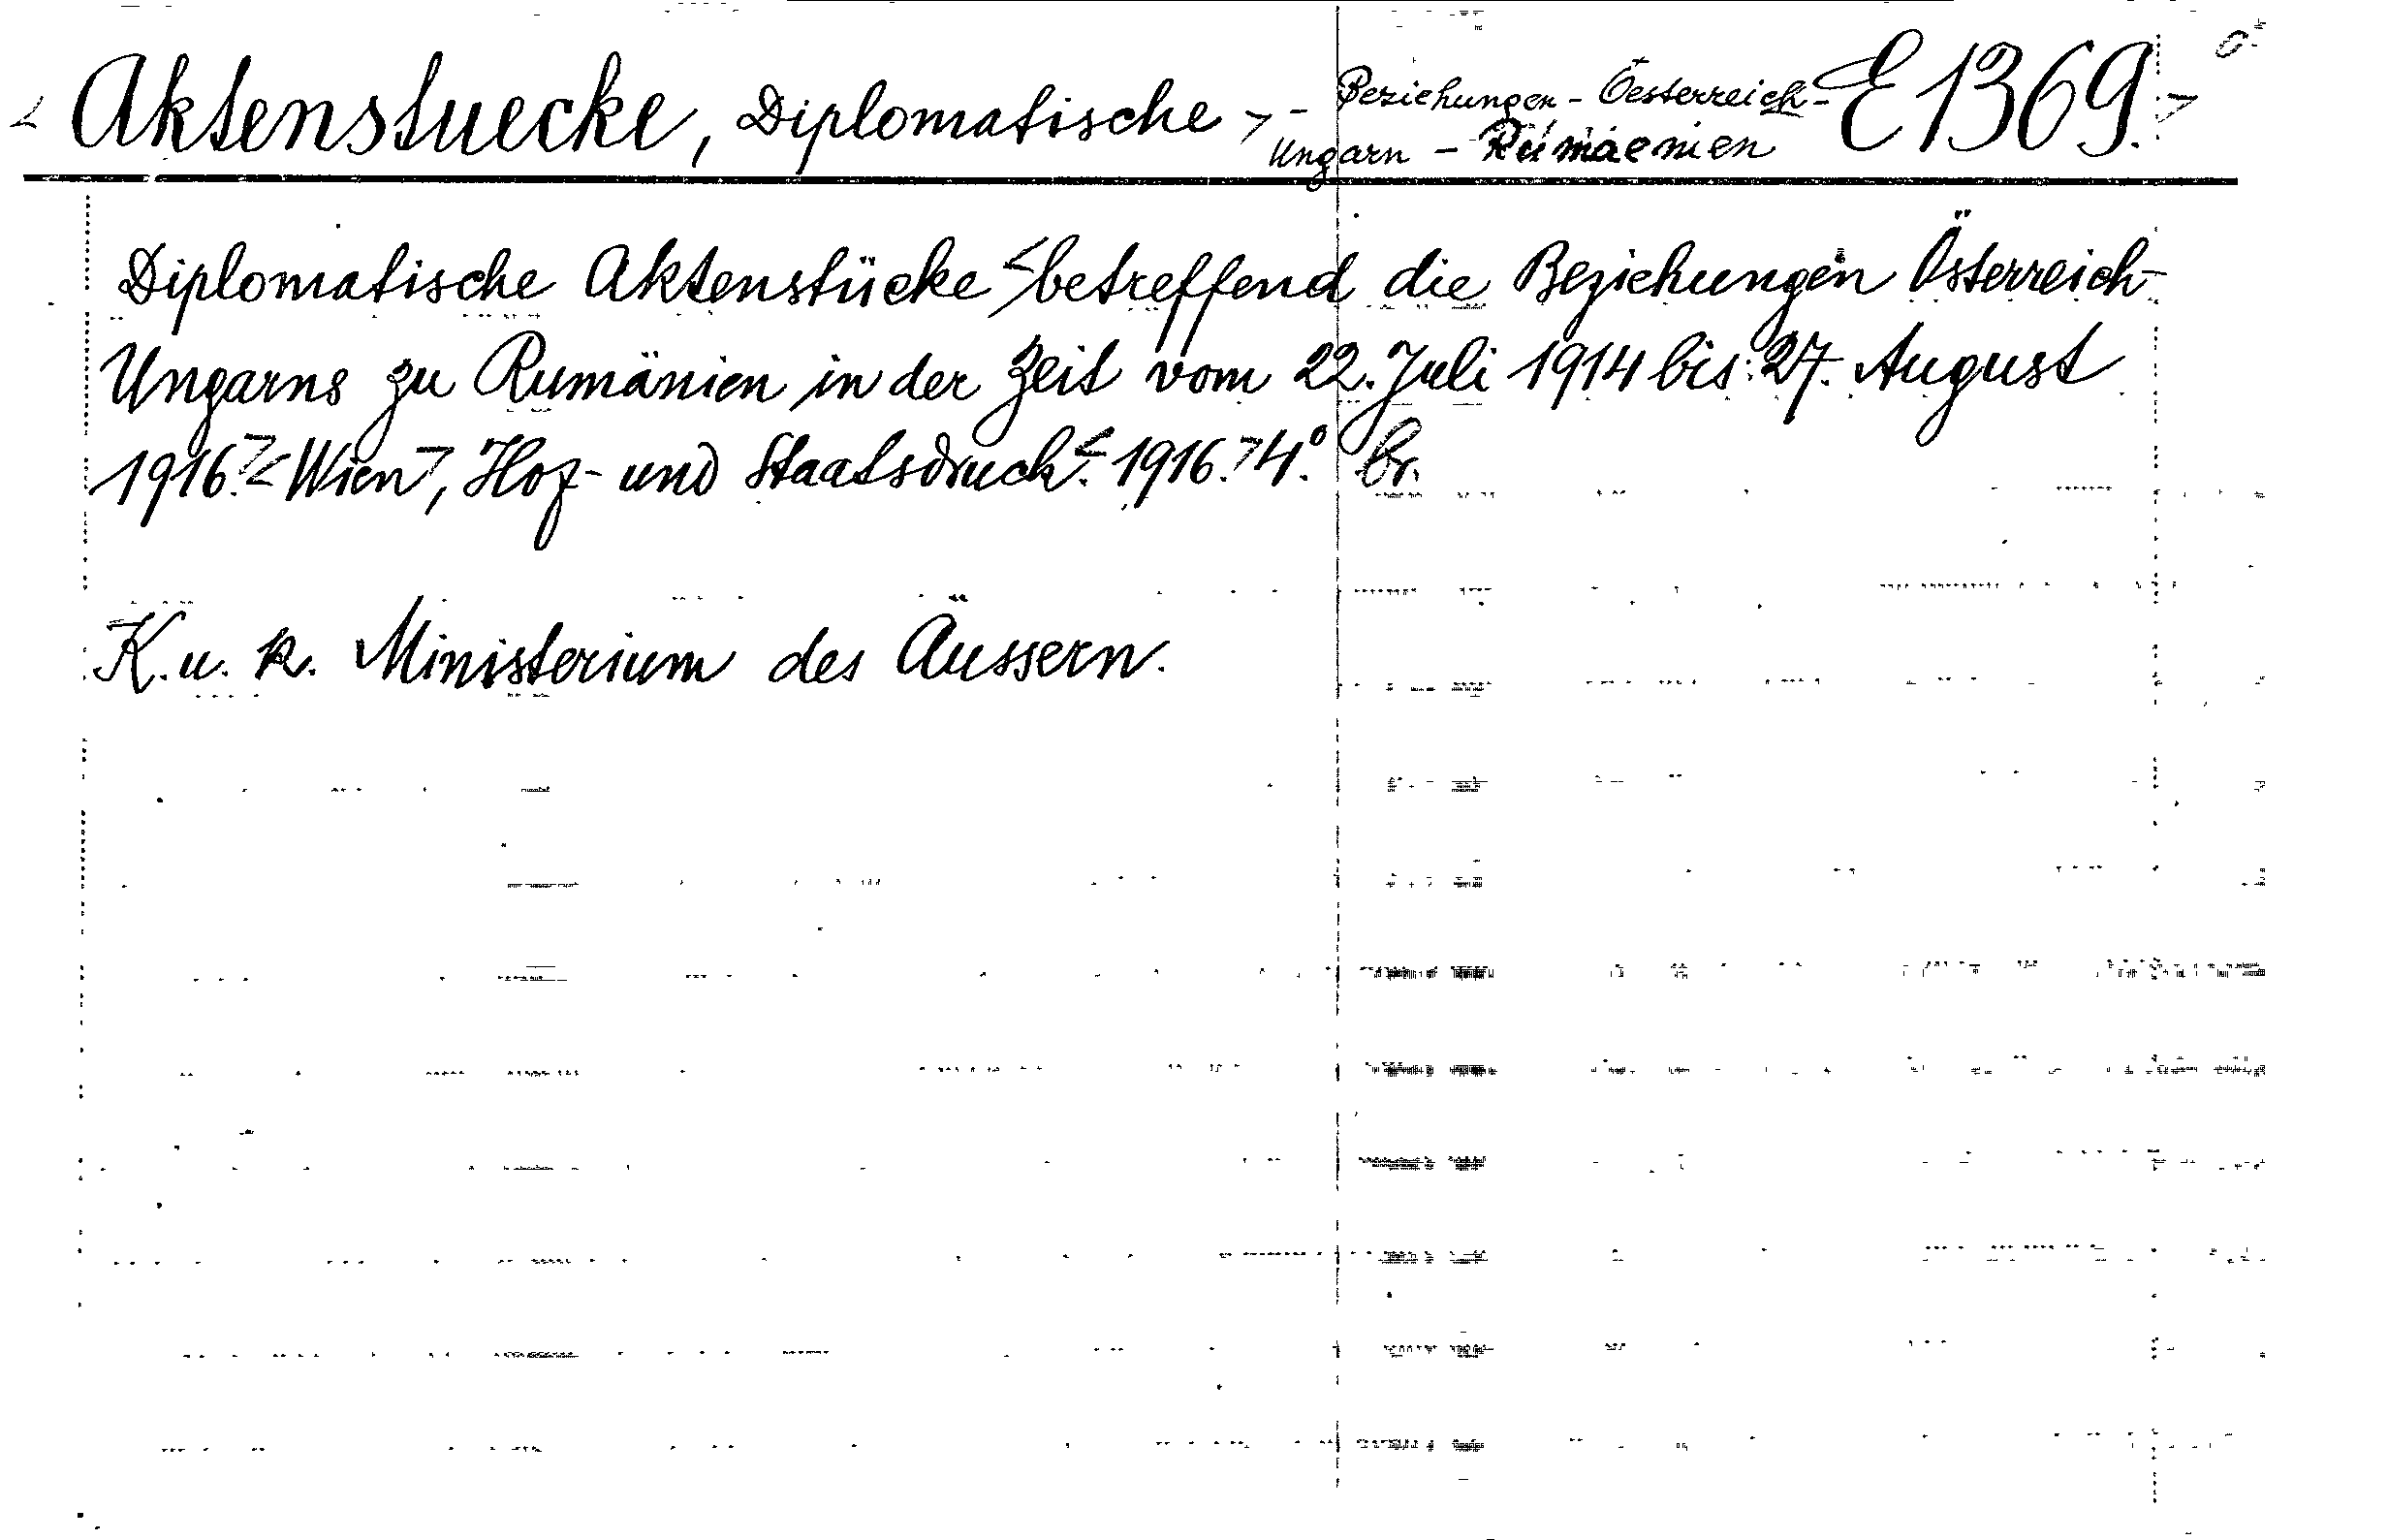 < Aktenstuecke, Diplomatische > - Beziehungen - Oesterreich-
Ungarn - Rumaenien E 1369. >
Diplomatische Aktenstücke < betreffend die Beziehungen Österreich-
Ungarns zu Rumänien in der Zeit vom 22. Juli 1914 bis 27. August
1916. > < Wien >, Hof- und Staatsdruck. < 1916. > 4.° br.
K. u. k. Ministerium des Äussern.